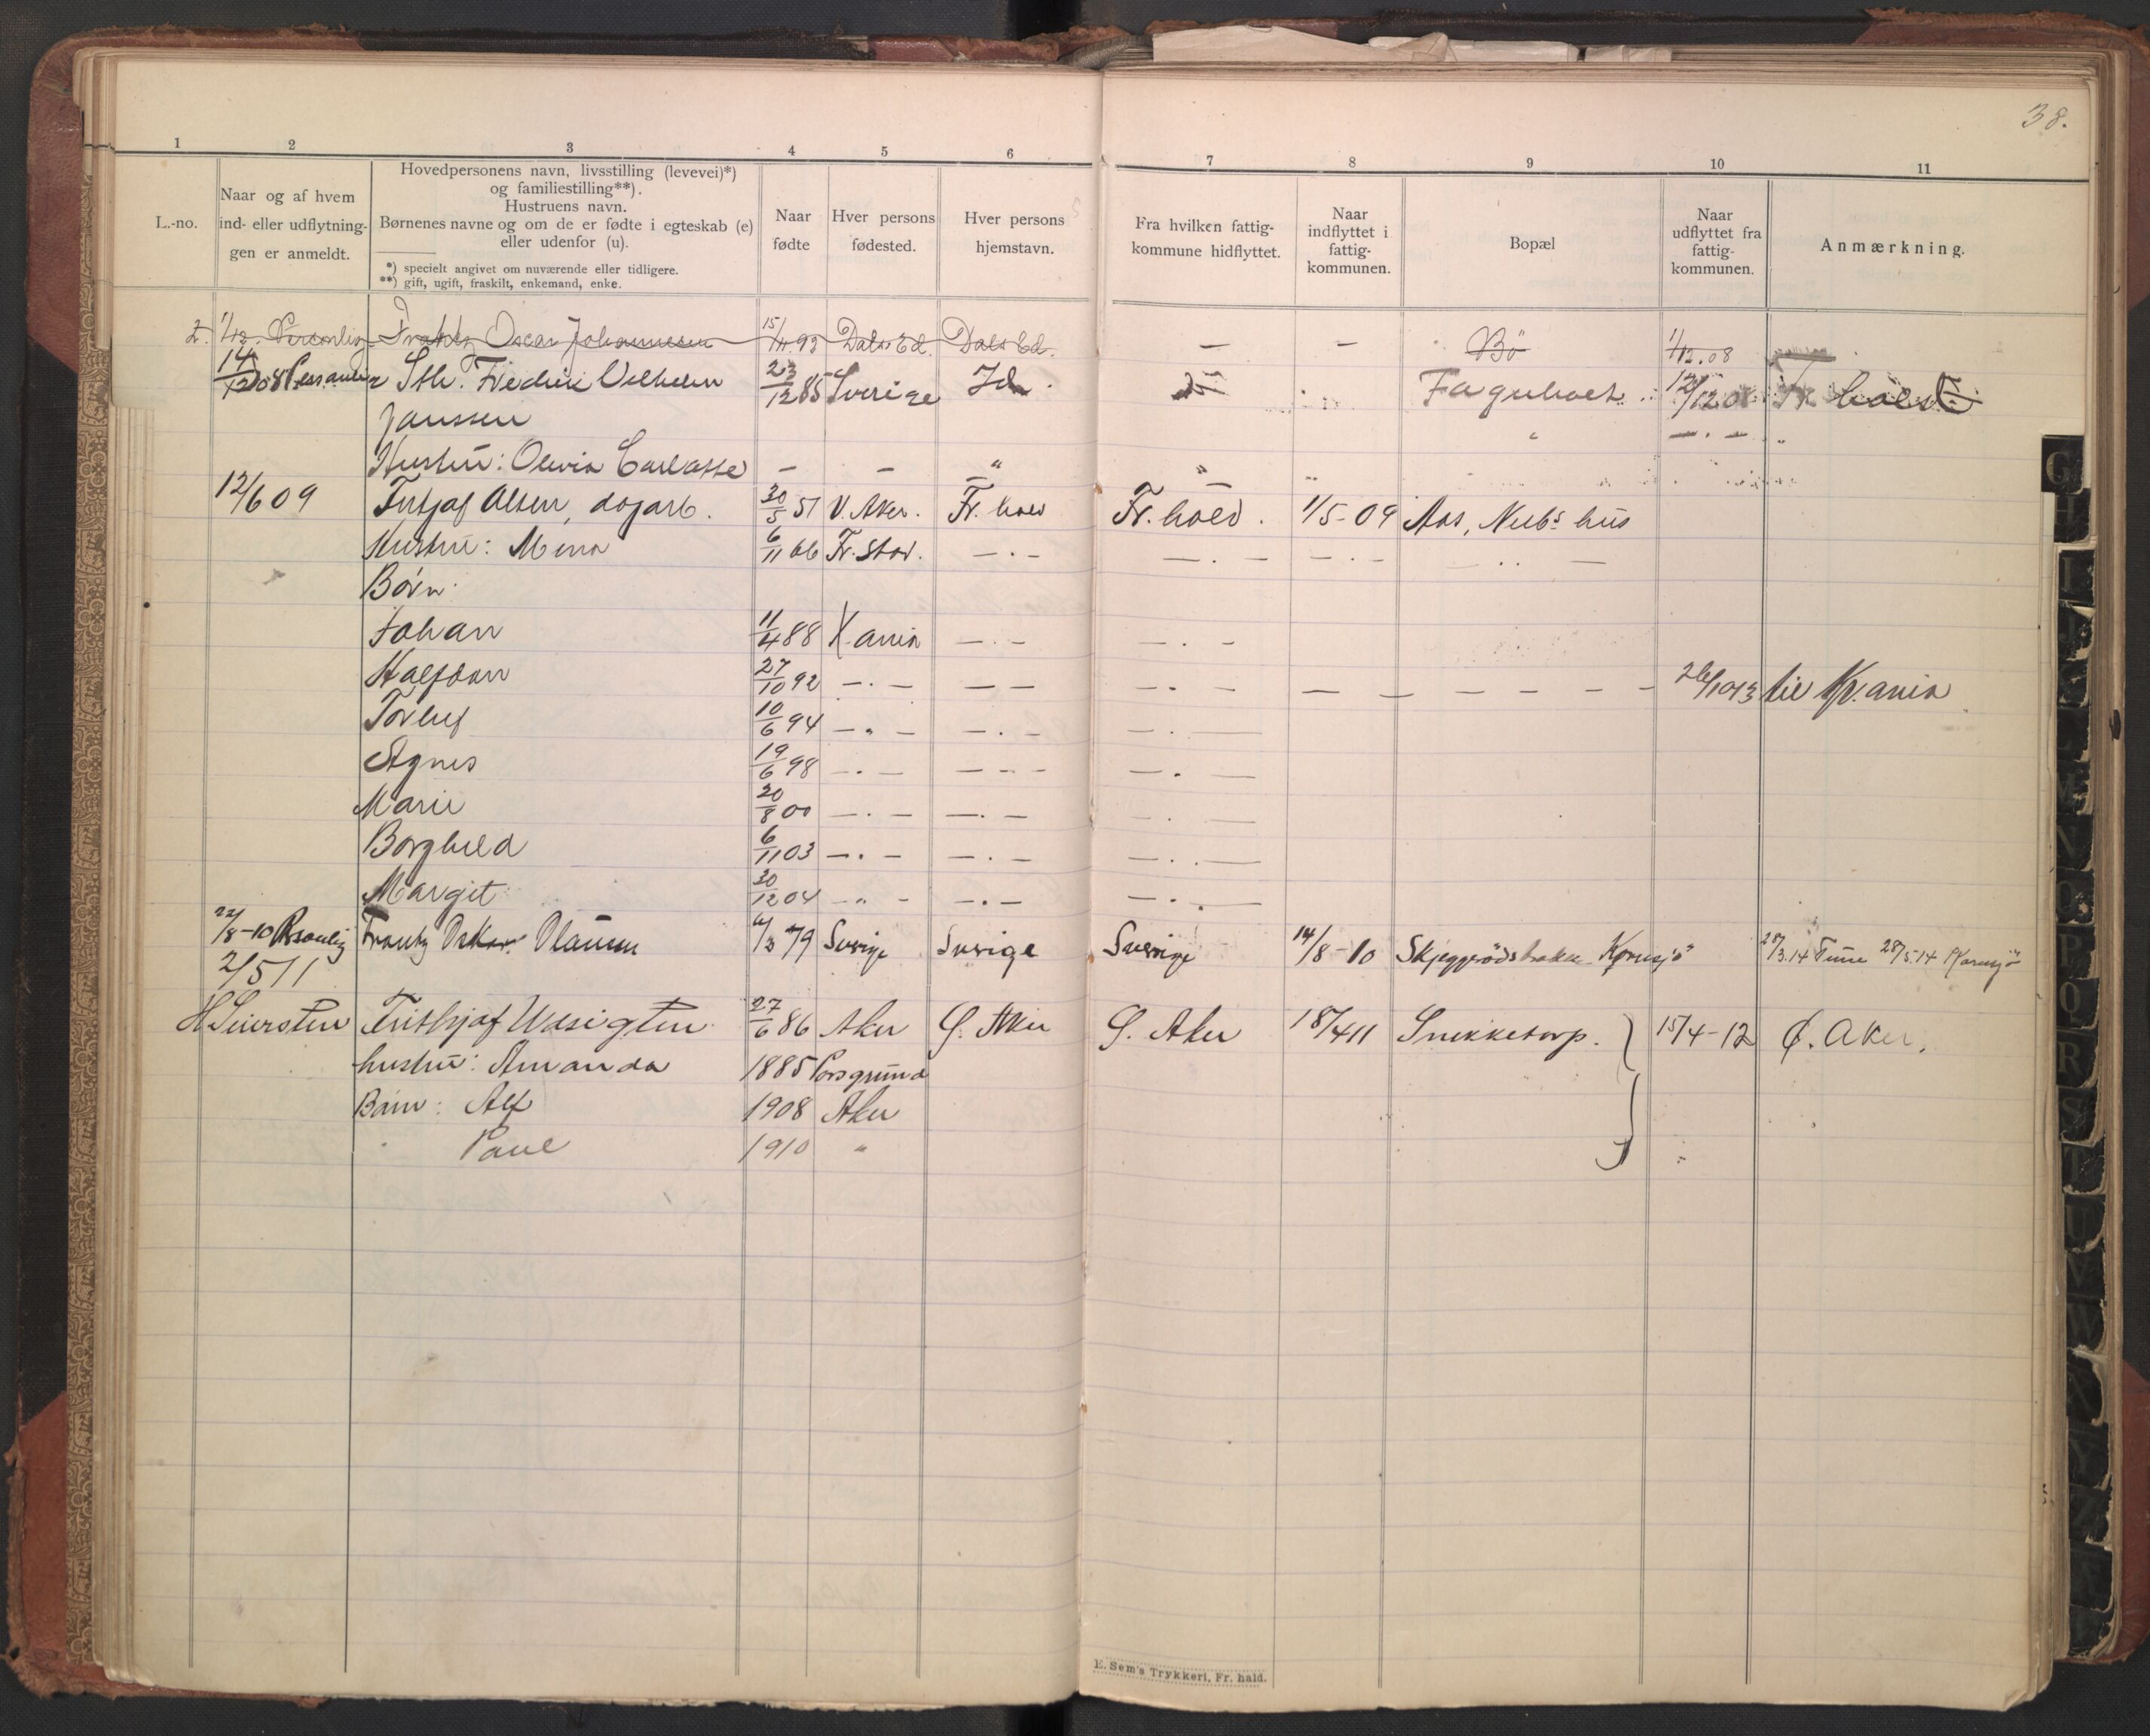 38.
1 2 3 4 5 6 7 8 9 10 11
L.-no.
Naar og af hvem
ind- eller udflytning-
gen er anmeldt.
Hovedpersonens navn, livsstilling (levevei)*)
og familiestilling**).
Hustruens navn.
Børnenes navne og om de er fødte i egteskab (e)
eller udenfor (u).
*) specielt angivet om nuværende eller tidligere.
**) gift, ugift, fraskilt, enkemand, enke.
Naar
fødte
Hver persons
fødested.
Hver persons
hjemstavn.
Fra hvilken fattig-
kommune hidflyttet.
Naar
indflyttet i
fattig-
kommunen.
Bopæl
Naar
udflyttet fra
fattig-
kommunen.
Anmærkning.
2. 1/12. Personlig Frantz Oscar Johannesen 15/11.93 Dals Ed. Dals Ed. — — Bö 1/12.08
14/12 08 Personlig Sth. Fredrik Vilhelm 23/12 85 Sverige Id. Faguholt 12/12 08 Fr. hald
Janssen
Hustru: Olevia — — "
12/6 09 Fritjof Olsen, dagarb. 30/5 51 V. Aker. Fr. hald Fr. hald. 1/5-09 Aas, hus
Hustru: Mina 6/11 66 Fr. stad. — . — — . — — . — — . . —
Börn:
Johan 11/4 88 K.ania — . — — . —
Halfdan 27/10 92 — . — — — — . — — — — — — — — 26/10 13 til Kr.ania
Torlief 10/6 94 — . — — . — — . —
Agnes 19/6 98 — . — — — — — . —
Marie 20/8 00 — . — — . — — . —
Borghild 6/11 03 — . — — . — — . —
Margit 30/12 04 — " — — . — — . —
22/8-10 Personlig Frantz Oskar Olausen /3 79 Sverige Sverige Sverige 14/8-10 Skjeggerödsbakke Kornsjö 28/3.14 Tune 28/5.14 Kornsjö
2/5 11
H Seiersten Frithjof Udsigten 27/6 86 Aker Ø. Aker Ø. Aker 18/4 11 Snekketorp. 15/4-12 Ø. Aker.
hustru: Amanda 1885 Porsgrund
Barn: Alf 1908 Aker
" Paul 1910 "
E. Sem's Trykkeri, Fr. hald.
G
I
J
M
N
O
P
Q
R
S
T
U
V
W
X
Y
Z